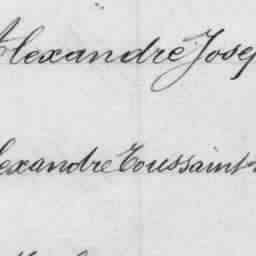 Alexandre Josep
exandre Toussaint